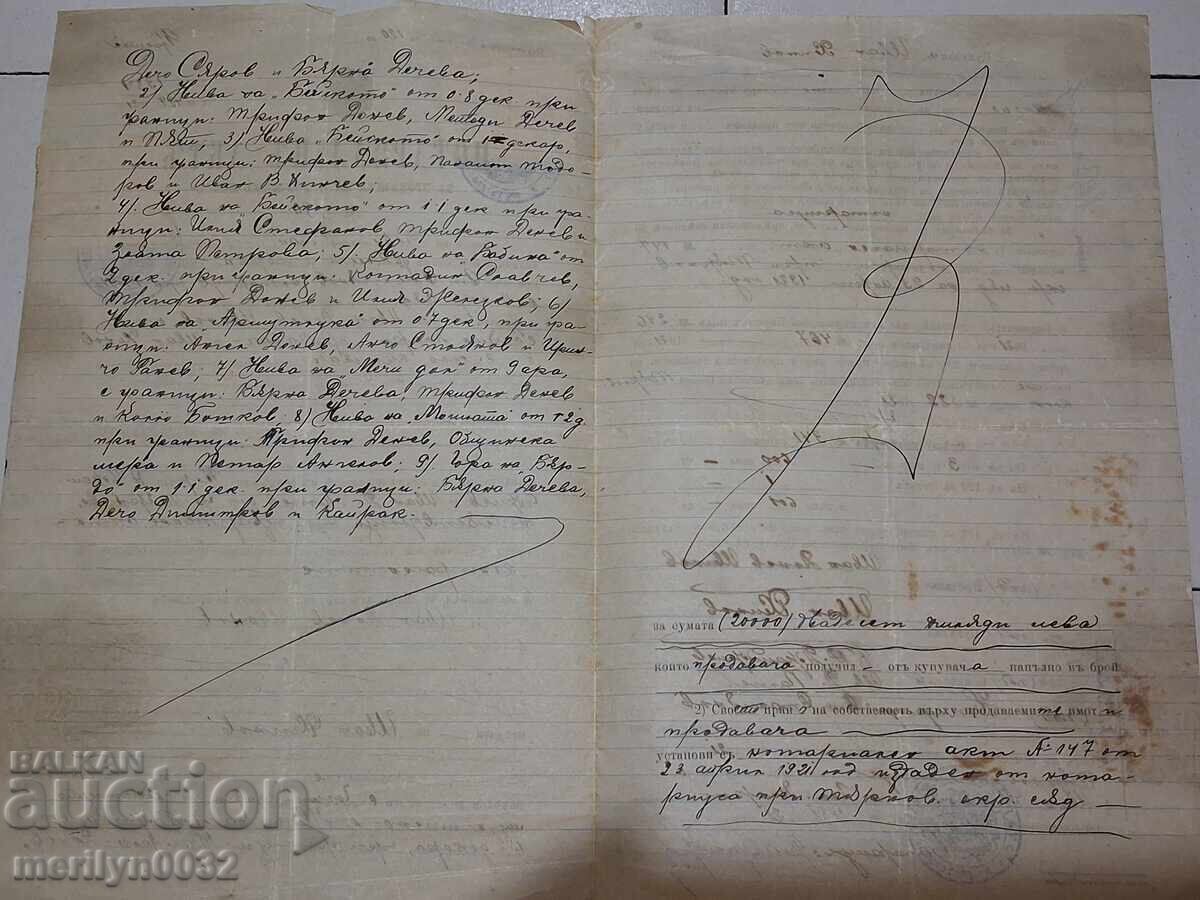 Дечо Сяров и Бярна Дечева;
2) Нива на „Бейското" от 0.8 дек при
граници: Трифон Денев, Методи Дечев
и Пят, 3) Нива „Бейското" от 1 декар,
при граници: Трифон Денев, Панаиот Тодо-
ров и Иван В. Динчев;
4). Нива на Бейското" от 1.1 дек при гра-
ници: Илия Стефанов, Трифон Денев и
Злата Петрова; 5). Нива на „Бабина" от
2 дек. при граници: Костадин Славчев,
Трифон Донев и Илия Железков; 6)
Нива на „Армутлука" от 0.7 дек, при гра-
ници: Ангел Денев, Анчо Стоянов и
чо Ганев; 7) Нива на „Мечи дол" от 9 ара,
с граници: Бярна Дечева, Трифон Денев
и Кольо Ботков: 8) Нива на „Могилата" от
при граници: Трифон Денев, Общинска
мера и Петар Ангелов; 9) Гора на „Бяр-
до" от 1.1 дек. при граници: Бярна Дечева,
Дечо Димитров и Кайряк.
за сумата (20000) двадесет хиляди лева
които продавача получил – отъ купувача напълно въ брой
2) Своето право на собственость върху продаваемите имоти
продавача
установи съ нотариален акт № 147 от
23 април 1921 год издаден от нота-
риуса при Тярнов. окр. сяд
BALKAN
auction
merilyn_0032